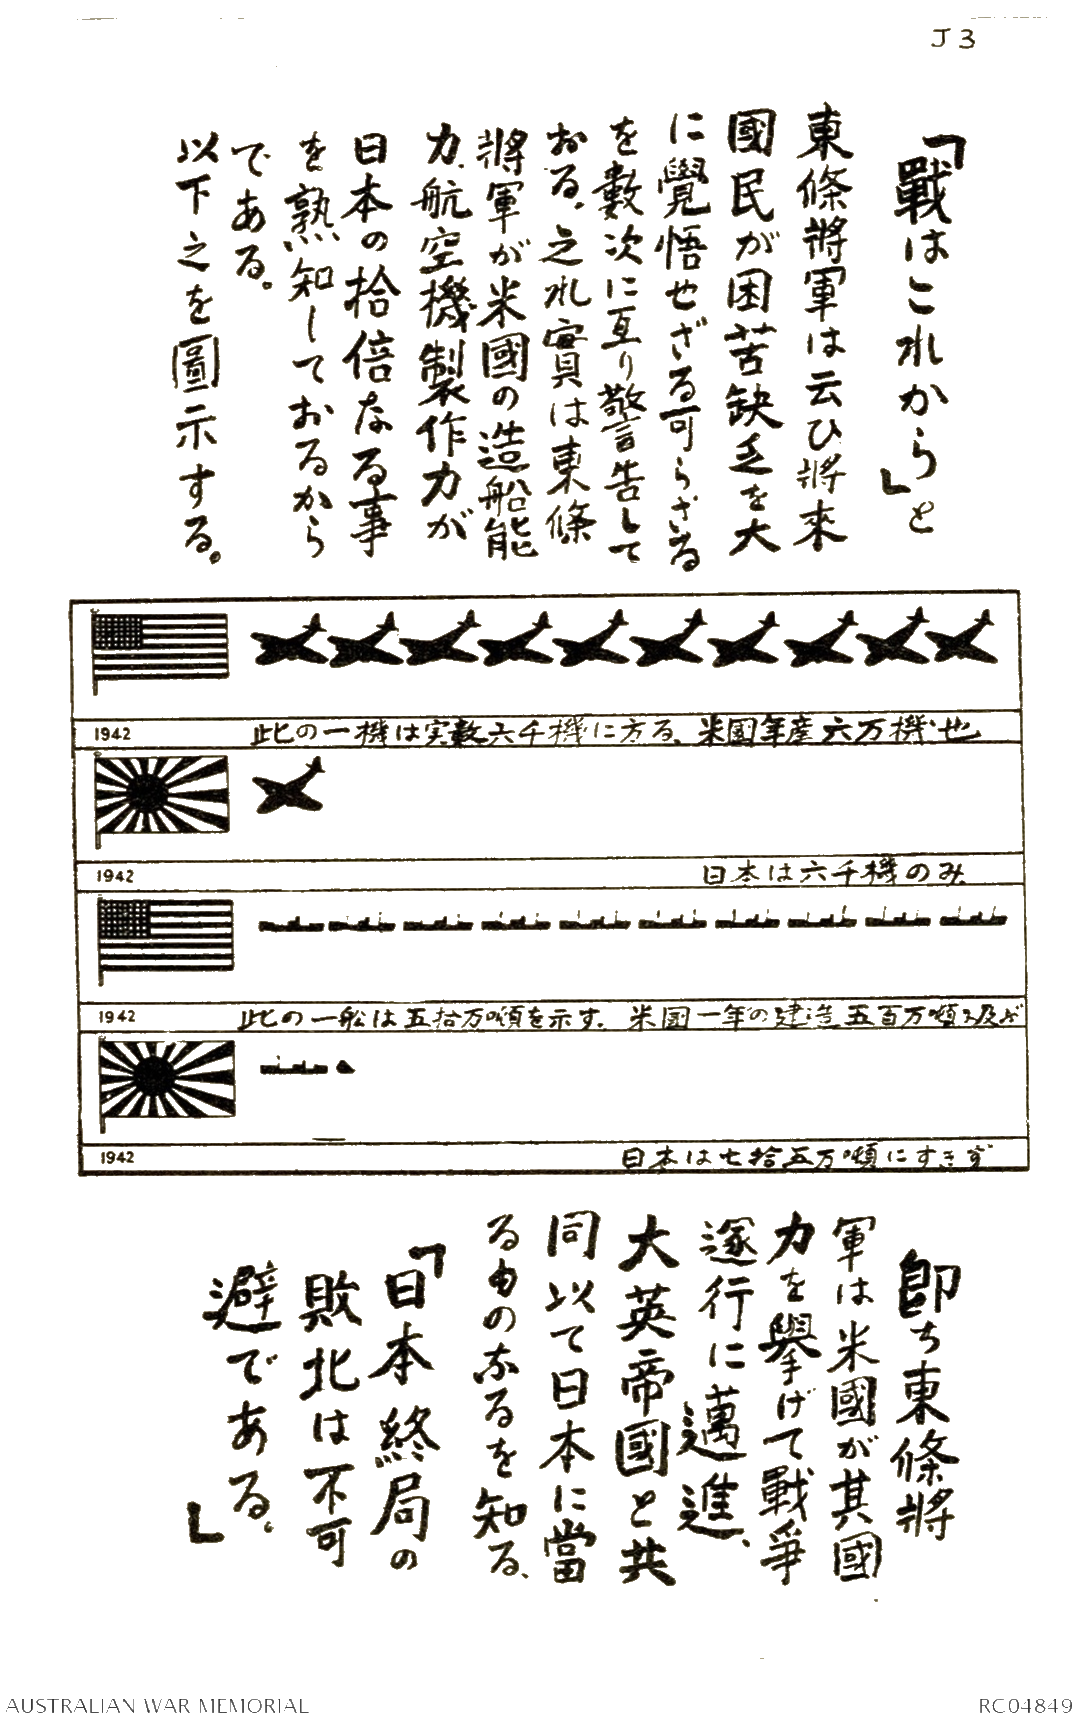 J3
「戰はこれから」と
東條將軍は云ひ將來
國民が困苦缺乏を大
に覺悟せざる可らざる
を數次に亙り警告して
おる、之れ實は東條
將軍が米國の造船能
力、航空機製作力が
日本の拾倍なる事
を熟知しておるから
である。
以下之を圖示する。
1942
此の一機は実數六千機に方る、米国年産六万機也
1942
日本は六千機のみ
1942
此の一舩は五拾万噸を示す。米国一年の建造五百万噸に及ぶ
1942
日本は七拾五万噸にすぎず
卽ち東條將
軍は米國が其國
力を擧げて戰爭
遂行に邁進、
大英帝國と共
同以て日本に當
るものなるを知る、
「日本終局の
敗北は不可
避である。」
AUSTRALIAN WAR MEMORIAL
RC04849